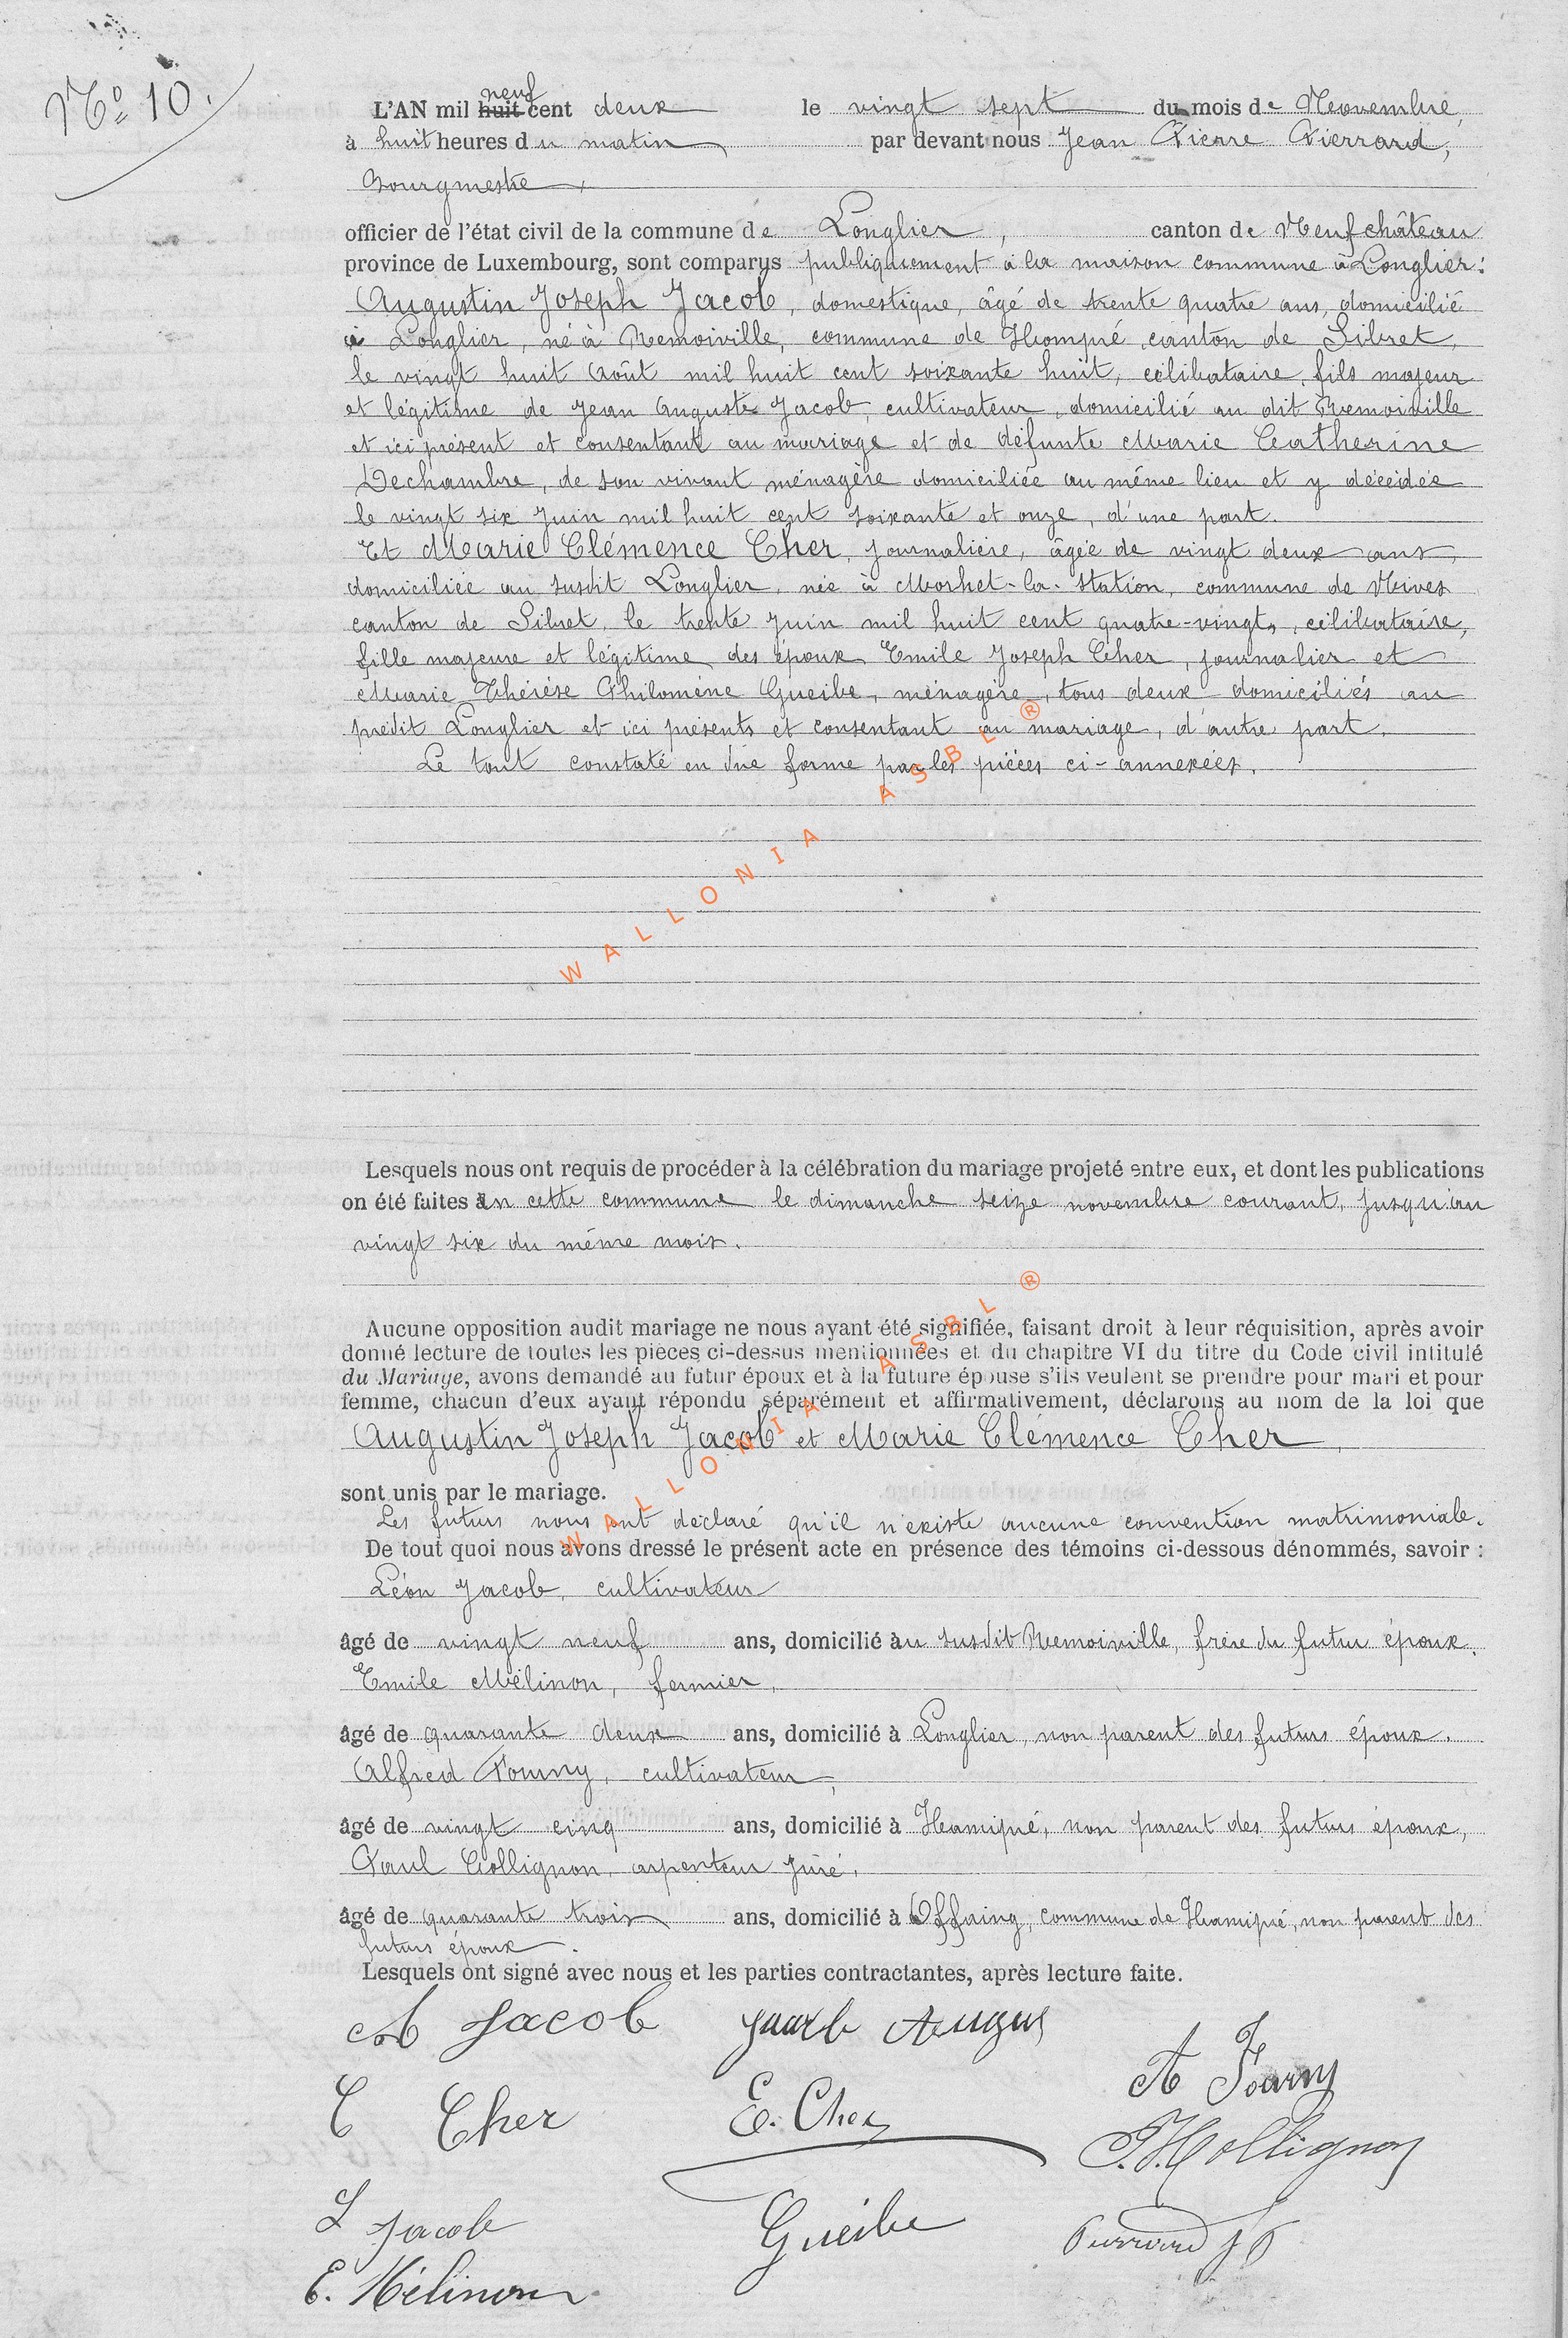 No 10.
L'AN mil huit neuf cent deux le vingt sept du mois de Novembre,
à huit heures du matin par devant nous Jean Pierre Pierrard,
Bourgmestre,
officier de l'état civil de la commune de Longlier, canton de Neufchâteau
province de Luxembourg, sont comparus publiquement à la maison commune à Longlier:
Augustin Joseph Jacob, domestique, âgé de trente quatre ans, domicilié
à Longlier, né à Remoiville, commune de Hompré, canton de Sibret,
le vingt huit Août mil huit cent soixante huit, célibataire, fils majeur
et légitime de Jean Auguste Jacob, cultivateur, domicilié au dit Remoiville
et ici présent et consentant au mariage et de défunte Marie Catherine
Dechambre, de son vivant ménagère domiciliée au même lieu et y décédée
le vingt six Juin mil huit cent soixante et onze, d'une part.
Et Marie Clémence Cher, journalière, âgée de vingt deux ans,
domiciliée au susdit Longlier, née à Morhet-la-Station, commune de Nives
canton de Sibret, le trente Juin mil huit cent quatre-vingts, célibataire,
fille majeure et légitime des époux Emile Joseph Cher, journalier et
Marie Thérèse Philomène Gueibe, ménagère, tous deux domiciliés au
prédit Longlier et ici présents et consentant au mariage, d'autre part.
Le tout constaté en due forme par les pièces ci-annexées.
WALLONIA ASBL ®
Lesquels nous ont requis de procéder à la célébration du mariage projeté entre eux, et dont les publications
on été faites en cette commune le dimanche seize novembre courant, jusqu'au
vingt six du même mois.
Aucune opposition audit mariage ne nous ayant été signifiée, faisant droit à leur réquisition, après avoir
donné lecture de toutes les pièces ci-dessus mentionnées et du chapitre VI du titre du Code civil intitulé
du Mariage, avons demandé au futur époux et à la future épouse s'ils veulent se prendre pour mari et pour
femme, chacun d'eux ayant répondu séparément et affirmativement, déclarons au nom de la loi que
Augustin Joseph Jacob et Marie Clémence Cher,
sont unis par le mariage.
Les futurs nous ont déclaré qu'il n'existe aucune convention matrimoniale.
WALLONIA ASBL ®
De tout quoi nous avons dressé le présent acte en présence des témoins ci-dessous dénommés, savoir :
Léon Jacob, cultivateur
âgé de vingt neuf ans, domicilié au susdit Remoiville, frère du futur époux.
Emile Mélinon, fermier,
âgé de quarante deux ans, domicilié à Longlier, non parent des futurs époux.
Alfred Fourny, cultivateur,
âgé de vingt cinq ans, domicilié à Hamipré, non parent des futurs époux,
Paul Collignon, arpenteur juré,
âgé de quarante trois ans, domicilié à Offaing, commune de Hamipré, non parent des
futurs époux.
Lesquels ont signé avec nous et les parties contractantes, après lecture faite.
A Jacob Jacob August
A Fourny
C Cher E. Cher
P. Collignon
L Jacob Gueibe Pierrard JP
E. Mélinon